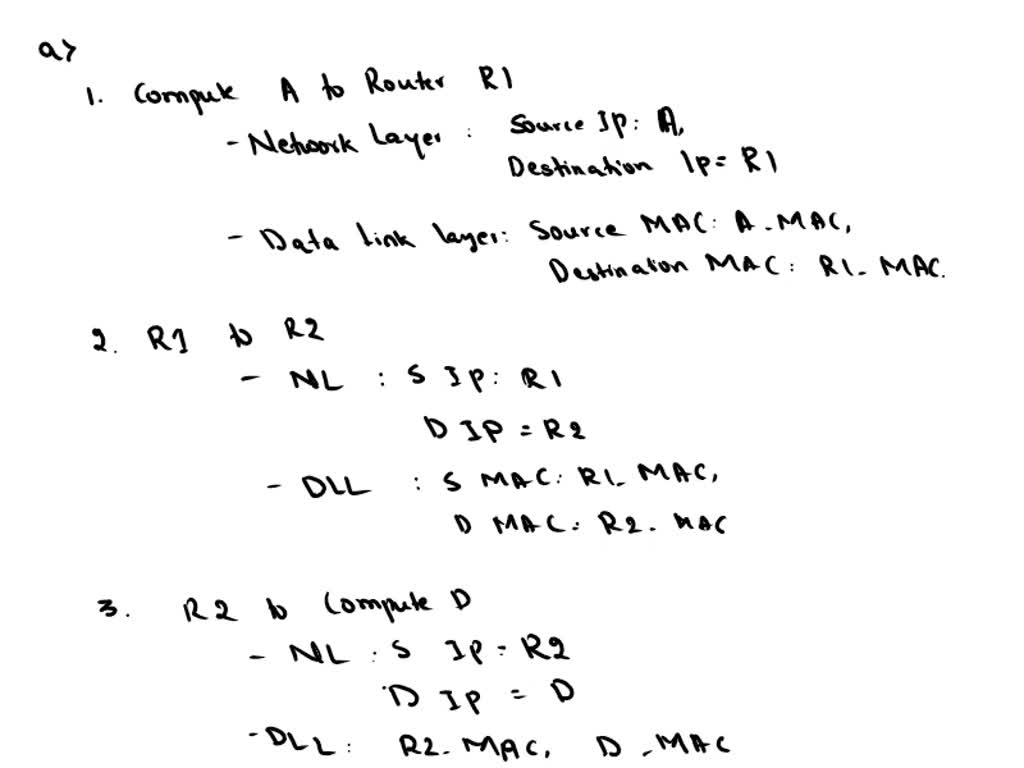 a>
1. Compute A to Router R1
- Network Layer : Source Ip: A,
Destination Ip= R1
- Data link layer: Source MAC: A-MAC,
Destination MAC: R1-MAC.
2. R1 to R2
- NL : S Ip: R1
D IP = R2
- DLL : S MAC: R1-MAC,
D MAC: R2-MAC
3. R2 to Compute D
- NL : S Ip = R2
D Ip = D
- DLL: R2-MAC, D-MAC